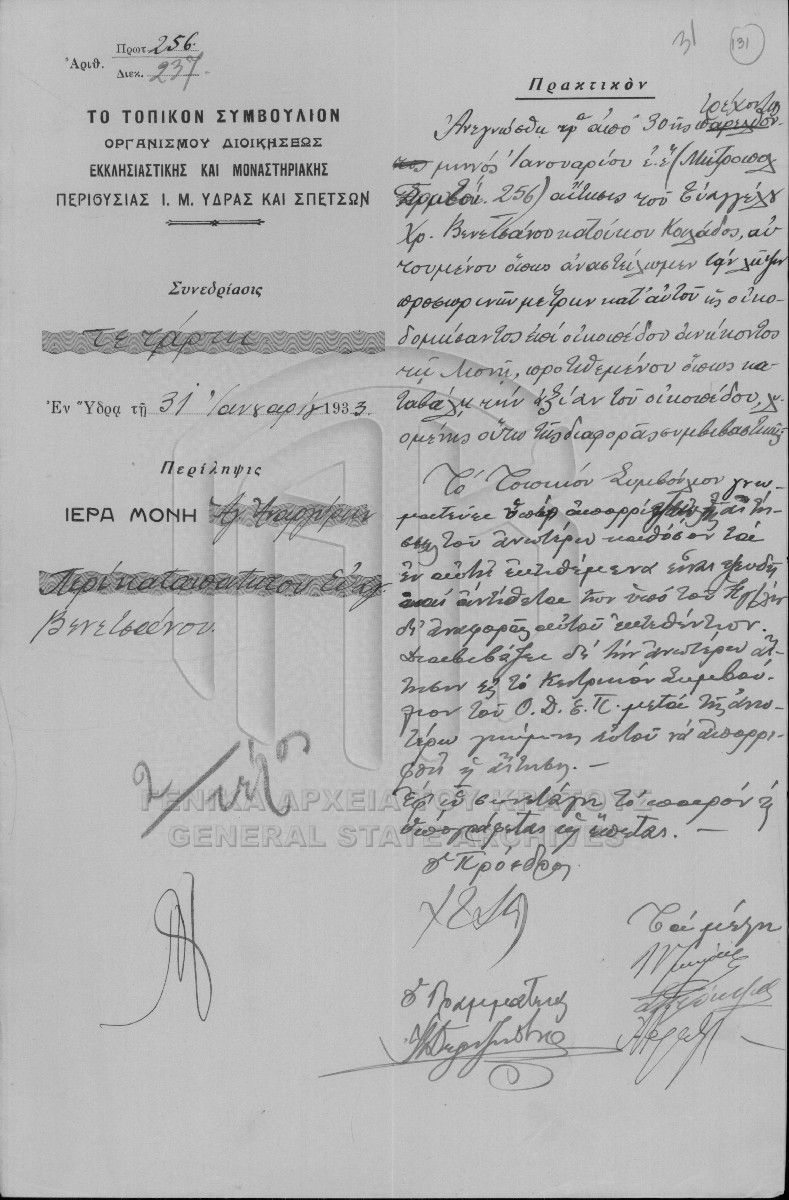 31 131
Πρωτ. 256.
Ἀριθ.
Διεκ. 237.
ΤΟ ΤΟΠΙΚΟΝ ΣΥΜΒΟΥΛΙΟΝ
ΟΡΓΑΝΙΣΜΟΥ ΔΙΟΙΚΗΣΕΩΣ
ΕΚΚΛΗΣΙΑΣΤΙΚΗΣ ΚΑΙ ΜΟΝΑΣΤΗΡΙΑΚΗΣ
ΠΕΡΙΟΥΣΙΑΣ Ι. Μ. ΥΔΡΑΣ ΚΑΙ ΣΠΕΤΣΩΝ
Συνεδρίασις
τετάρτη
Ἐν Ὕδρᾳ τῇ 31 Ἰανουαρίου 1933.
Περίληψις
ΙΕΡΑ ΜΟΝΗ Ἁγ. Ἀναργύρων
Περί καταπατητοῦ Εὐαγ.
Βενετσάνου.
Πρακτικὸν
τρέχοντος
Ἀνεγνώσθη ἡ ἀπό 30 ἧς παρελθόν-
τος μηνός Ἰανουαρίου ἐ.ἔ. (Μητροπολ.
256) αἴτησις τοῦ Εὐαγγέλου
Χρ. Βενετσάνου κατοίκου Κοιλάδος, αἰ-
τουμένου ὅπως ἀναστείλωμεν τήν λῆψιν
προσωρινῶν μέτρων κατ' αὐτοῦ ὡς οἰκο-
δομήσαντος ἐπί οἰκοπέδου ἀνήκοντος
τῇ Μονῇ, προτιθεμένου ὅπως κα-
ταβάλῃ τήν ἀξίαν τοῦ οἰκοπέδου, λυ-
ομένης οὕτω τῆς διαφορᾶς συμβιβαστικῶς
Τό Τοπικόν Συμβούλιον γνω-
ματεύει ὑπέρ ἀπορρίψεως τῆς αἰτή-
σεως τοῦ ἀνωτέρω καθόσον τά
ἐν αὐτῇ ἐκτιθέμενα εἶναι ψευδῆ
καί ἀντίθετα τῶν ὑπό τοῦ Ἡγ/λίου
δι' ἀναφορᾶς αὐτοῦ ἐκτεθέντων.
Διαβιβάζει δέ τήν ἀνωτέρω αἴ-
τησιν εἰς τό Κεντρικόν Συμβού-
λιον τοῦ Ο.Δ.Ε.Π. μετά τῆς ἀνω-
τέρω γνώμης αὐτοῦ νά ἀπορρι-
φθῇ ἡ αἴτησις. —
Ἐφ' ᾧ συνετάγη τό παρόν καί
ὑπογράφεται ὡς ἕπεται. —
Ὁ Πρόεδρος
Τά μέλη
Ὁ Γραμματεύς
ΓΕΝΙΚΑ ΑΡΧΕΙΑ ΤΟΥ ΚΡΑΤΟΥΣ
GENERAL STATE ARCHIVES